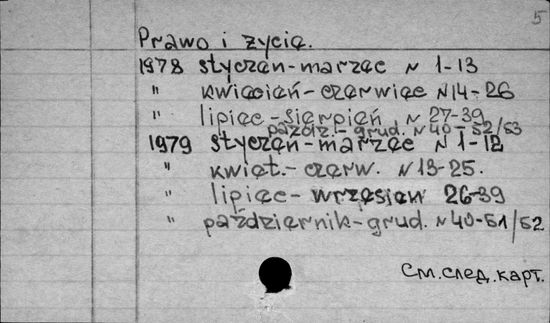 5
Prawo i życie.
1978 styczeń-marzec N 1-13
" kwiecień-czerwiec N 14-26
" lipiec-sierpień N 27-39
paźdz.-grud. N 40-52/53
1979 styczeń-marzec N 1-12
" kwiet.-czerw. N 13-25.
" lipiec-wrzesień 26-39
" październik-grud. N 40-51/52
См.след.карт.